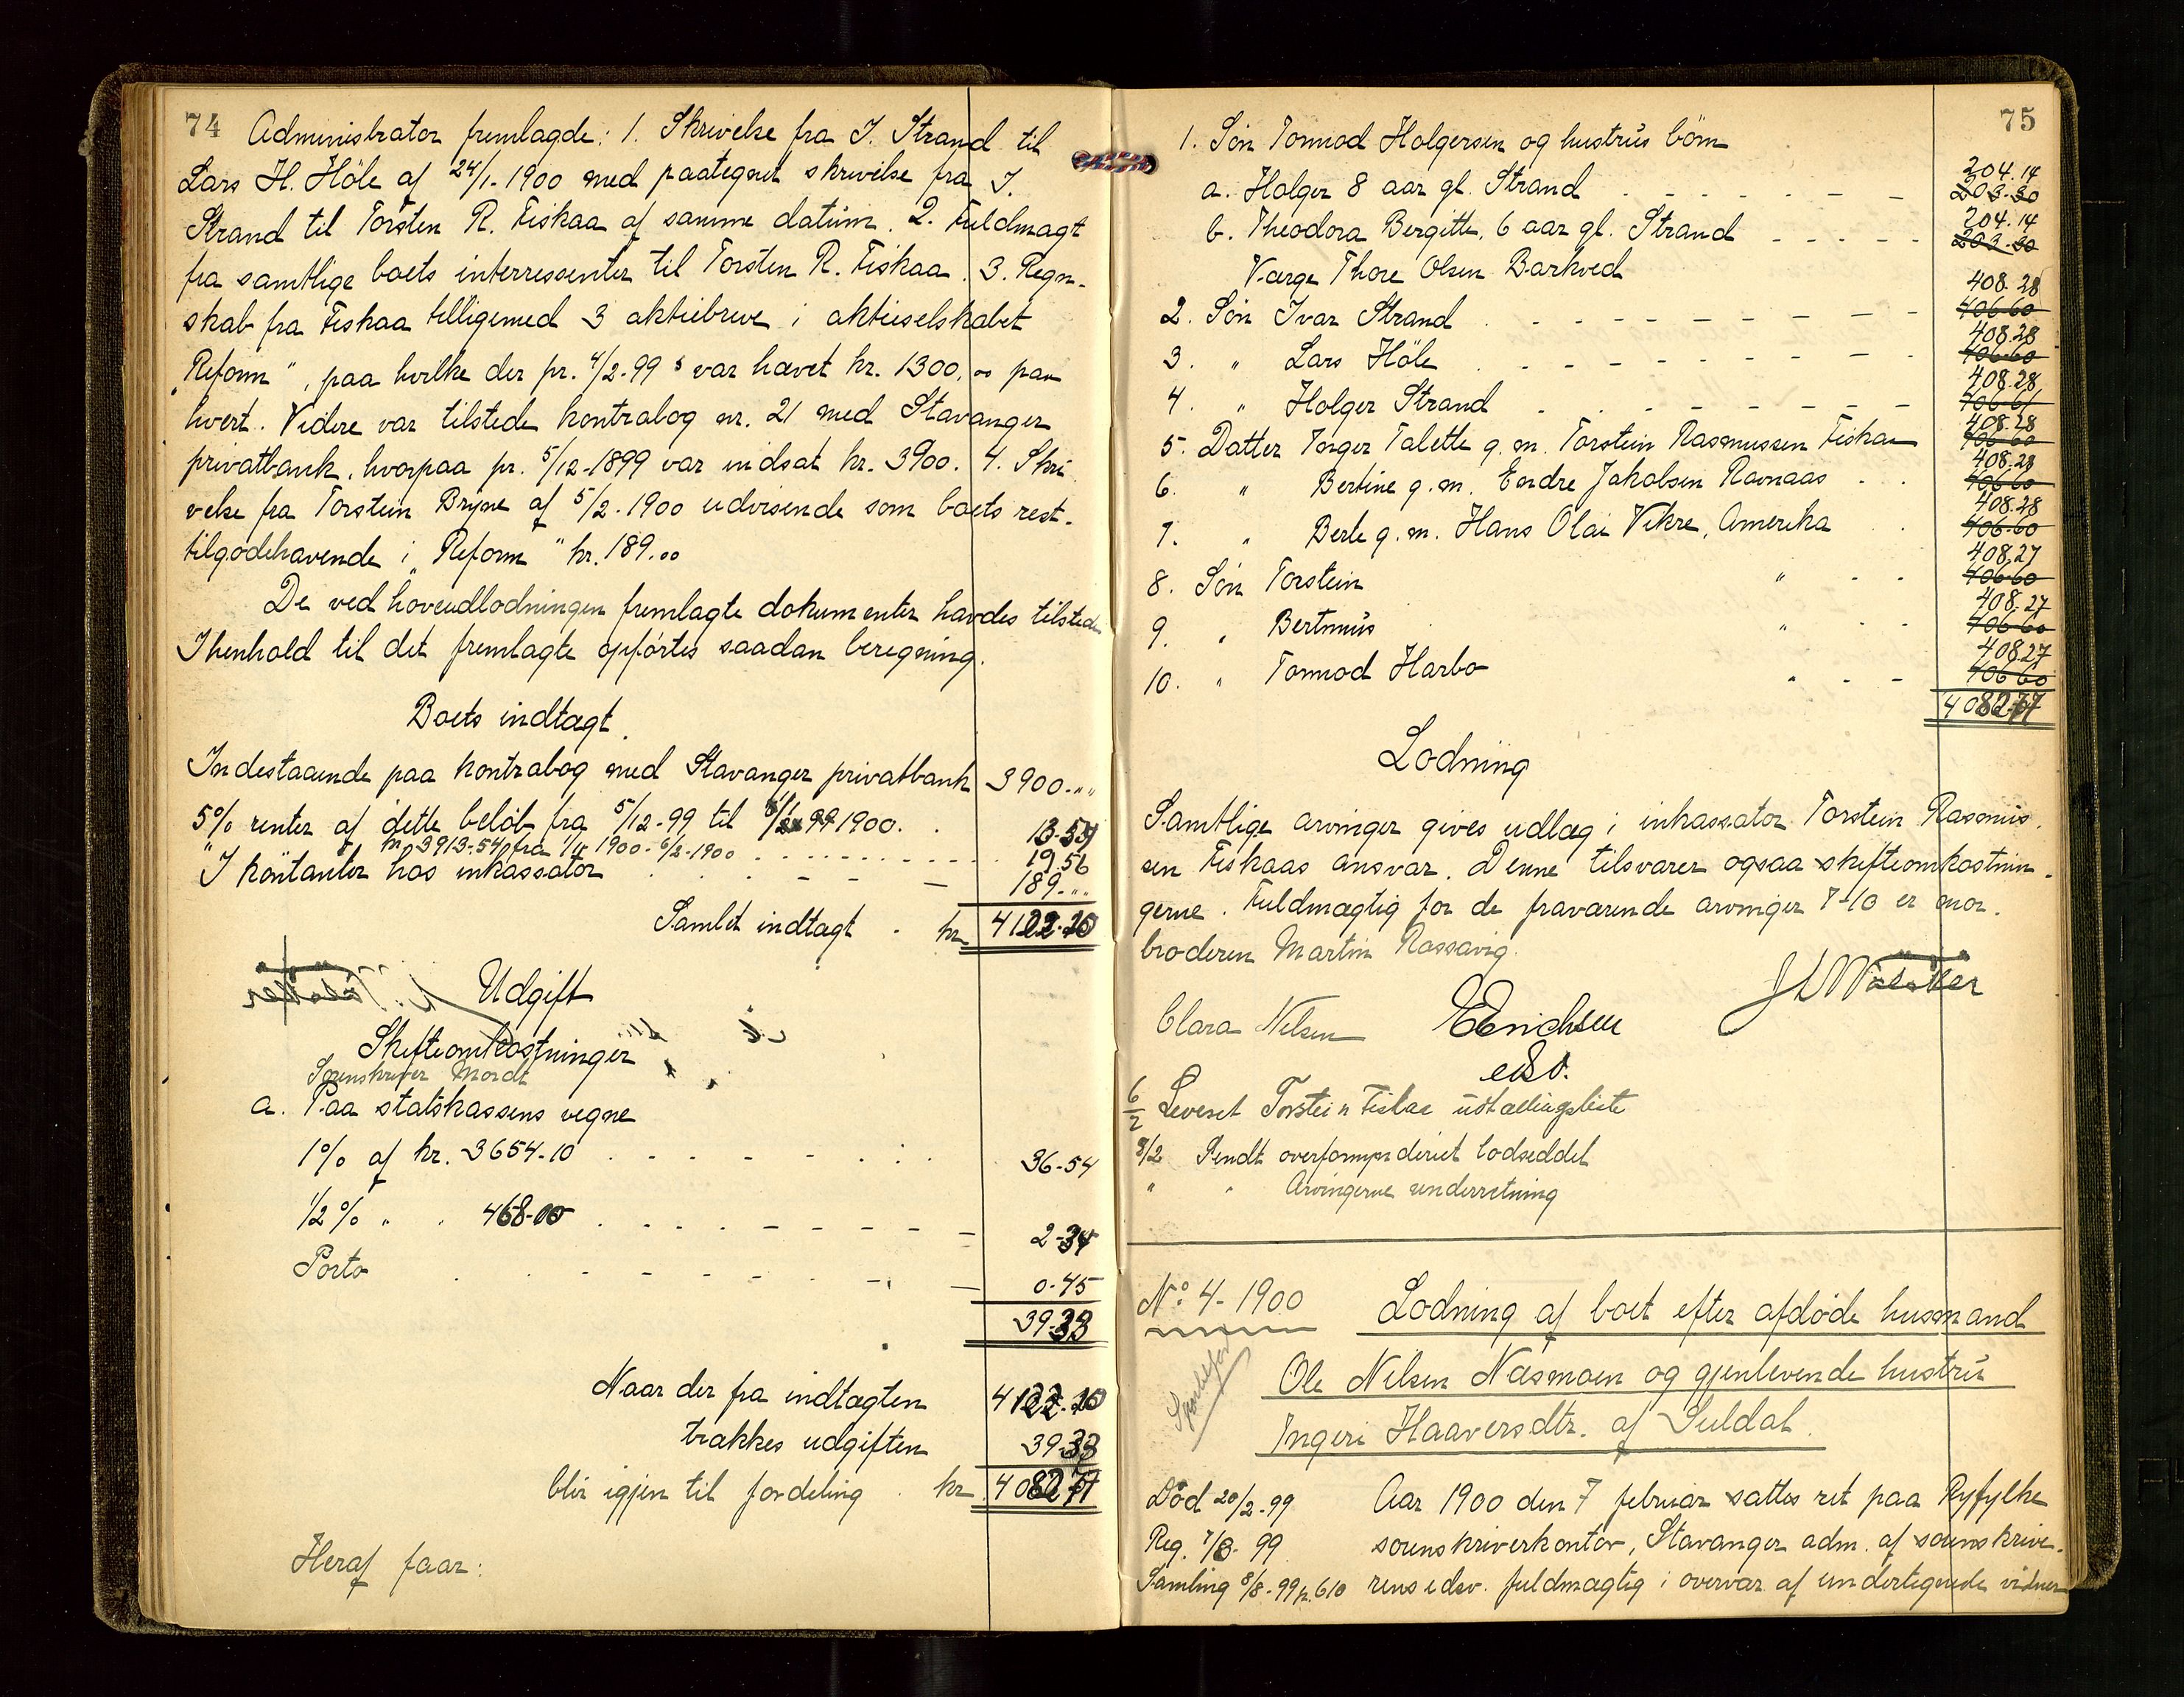 74
Administrator fremlagde: 1. Skrivelse fra I. Strand til
Lars H. Höle af 24/1-1900 med paategnet skrivelse fra I.
Strand til Torsten R. Fiskaa af samme datum. 2. Fuldmagt
fra samtlige boets interressenter til Torsten R. Fiskaa. 3. Regn-
skab fra Fiskaa tilligemed 3 aktiebreve i aktieselskabet
"Reform", paa hvilke der pr. 4/2-99 var hævet kr. 1300,00 paa
hvert. Videre var tilstede kontrabog nr. 21 med Stavanger
privatbank, hvorpaa pr. 5/12-1899 var indsat kr. 3900. 4. Skri
velse fra Torstein Bryne af 5/2-1900 udvisende som boets rest-
tilgodehavende i "Reform" kr. 189.00
De ved hovedudlodningen fremlagte dokumenter havdes tilstede
I henhold til det fremlagte opførtes saadan beregning.
Boets indtægt.
Indestaaende paa kontrabog med Stavanger privatbank 3900-""
5% renter af dette beløb fra 5/12-99 til 1/1 1900. . 13-54
" " kr 3913-54 fra 1/1 1900-6/2-1900 . . . . . . . . . . 19.56
I kontanter hos inkassator . . . - - - 189.""
Samlet indtægt . kr 4122.10
Udgift
Skifteomkostninger
Sorenskriver Mordt
a. Paa statskassens vegne
1% af kr. 3654-10 . . . - - . . . 36-54
1/2% " . 468-00 . . . - - - - - 2-34
Porto . . - - - - . - . - 0-45
39-33
Naar der fra indtægten 4122.10
trækkes udgiften 39.33
blir igjen til fordeling . kr 4082.77
Heraf faar:
75
1. Søn Tormod Holgersen og hustrus börn
204.14
a. Holger 8 aar gl. Strand . - - - - - - 203-30
204.14
b. Theodora Bergitte, 6 aar gl. Strand - - - - 203-30
Værge Thore Olsen Barkved
408.28
2. Søn Ivar Strand . - - - - - - - - 406-60
408.28
3. " Lars Höle . - - - - - - - . 406-60
408.28
4. " Holger Strand . . - - - - - - 406-61
408.28
5. Datter Torger Talette g. m. Torstein Rasmussen Fiskaa 406-60
408.28
6. " Bertine g. m. Endre Jakobsen Ravnaas . . 406-60
408.28
7. " Berte g. m. Hans Olai Vikre, Amerika . 406-60
408.27
8. Søn Torstein " - - 406-60
408.27
9. " Bertinus " - - 406-60
408.27
10. " Tormod Harbo " - - 406-60
4082.77
Lodning
Samtlige arvinger gives udlæg i inkassator Torstein Rasmus.
sen Fiskaas ansvar. Denne tilsvarer ogsaa skifteomkostnin.
gerne. Fuldmægtig for de fraværende arvinger 7-10 er mor.
broderen Martin Rossavig.
Clara Nilsen EErichsen
edsv.
6/2 Leveret Torstein Fiskaa
8/2 Sendt overformynderiet lodseddel
" " Arvingerne underretning
No. 4-1900 Lodning af boet efter afdøde husmand
Ole Nilsen Næsmoen og gjenlevende hustru
Ingeri Haaversdtr. af Suldal.
Død 20/2-99. Aar 1900 den 7 februar sattes ret paa Ryfylke
Reg. 7/8-99 sorenskriverkontor, Stavanger adm. af sorenskrive-
Samling 8/8-99 p. 610 rens edsv. fuldmægtig i overvær af undertegnede vidner